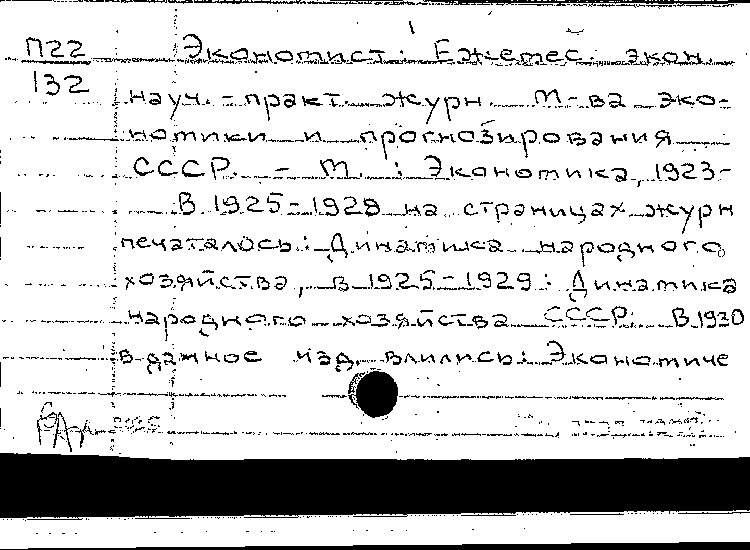 1
П22 Экономист: Ежемес. экон.
132
науч.-практ. журн. М-ва эко-
номики и прогнозирования
СССР. - М. : Экономика, 1923-
В 1925-1928 на страницах журн
печаталось: Динамика народного
хозяйства, в 1925-1929: Динамика
народного хозяйства СССР. В 1930
в данное изд. влились: Экономиче